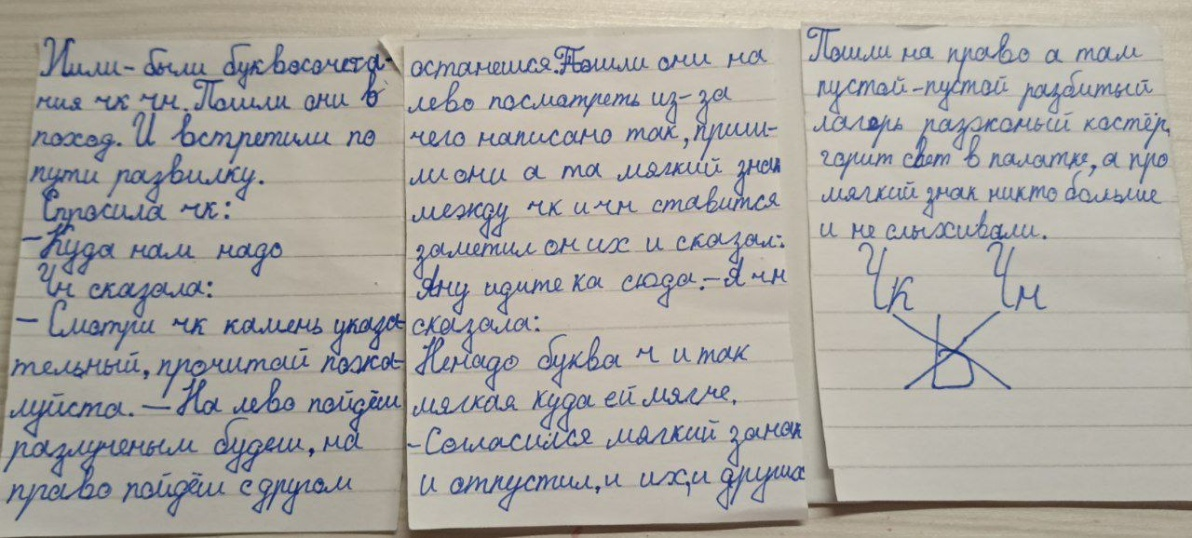 Жили-были буквосочета-
ния чк чн. Пошли они в
поход. И встретили по
пути развилку.
Спросила чк:
- Куда нам надо
Чн сказала:
- Смотри чк камень указа-
тельный, прочитай пожа-
луйста. - На лево пойдёш
разлученым будеш, на
право пойдёш с другом
останешся. Пошли они на
лево посмотреть из-за
чего написано так, приш-
ли они а та мягкий знак
между чк и чн ставится
заметил он их и сказал:
Ану идите ка сюда. - Я чн
сказала:
Ненадо буква ч и так
мягкая куда ей мягче.
- Согласился мягкий занак
и отпустил, и их, и других
Пошли на право а там
пустой-пустой разбитый
лагерь разжоный костёр,
горит свет в палатке, а про
мягкий знак никто больше
и не слыхивали.
Чк Чн
ь